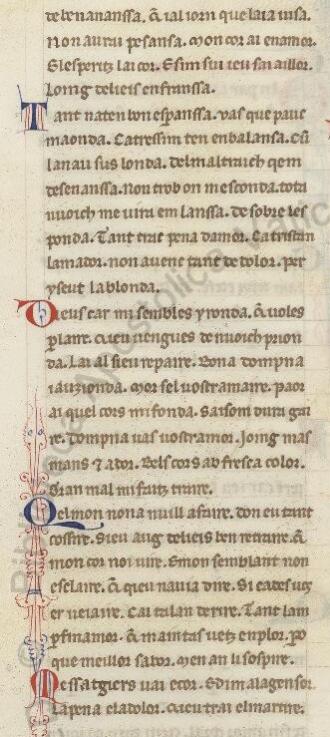 de benananssa. Qͥ ial iorn que laia uisa.
Non aurai pesansa. Mon cor ai enamor.
El esperitz lai cor. E si m sui ieu sai aillor.
Loing de lieis en franssa.
Tant naten bon espanssa. vas que pauc
maonda. Catressim ten en balansa. Cū
la nau sus londa. del maltraich qem
desenanssa. non trob on mesconda. tota
nuoich me uira em lanssa. de sobre les
ponda. Tant trac pena damor. Ca tristan
lamador. non auenc tant de dolor. per
yseut la blonda.
Dieus car mi sembles yronda. Qͥ uoles
p laire. Qieu uengues de nuoich prion
da. Lai al sieu repaire. Bona dompna
iauzionda. Mor sel uostramaire. paor
ai quel cors mi fonda. Saisom dura gai
re. Dompna uas uostramor. Joing mas
mans ⁊ ador. Bels cors ab fresca color.
Gran mal mi faitz traire.
Qel mon non a nuill afaire. don eu tant
cossire. Sieu aug de lieis ben retraire. Qͥ
mon cor noi uire. E mon semblant non
esclaire. Qͥ qieu naia dire. Si cades uetz
er ueiaire. Cai talan de rire. Tant lam
p fin amor. Qͥ maintas uetz en plor. po
que meillor sabor. Men an li sospire.
Messatgiers uai e cor. E dim a la gensor.
La pena e la dolor. Qieu trai el martire.